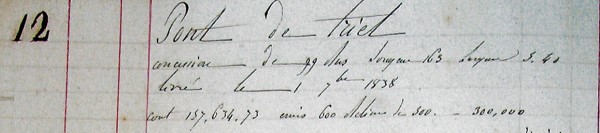 12 Pont de triel
concession de 99 ans longueur 163 largeur 5.40
livré le 1 7bre 1838
cout 157,634.73 emis 600 actions de 500. - 300,000